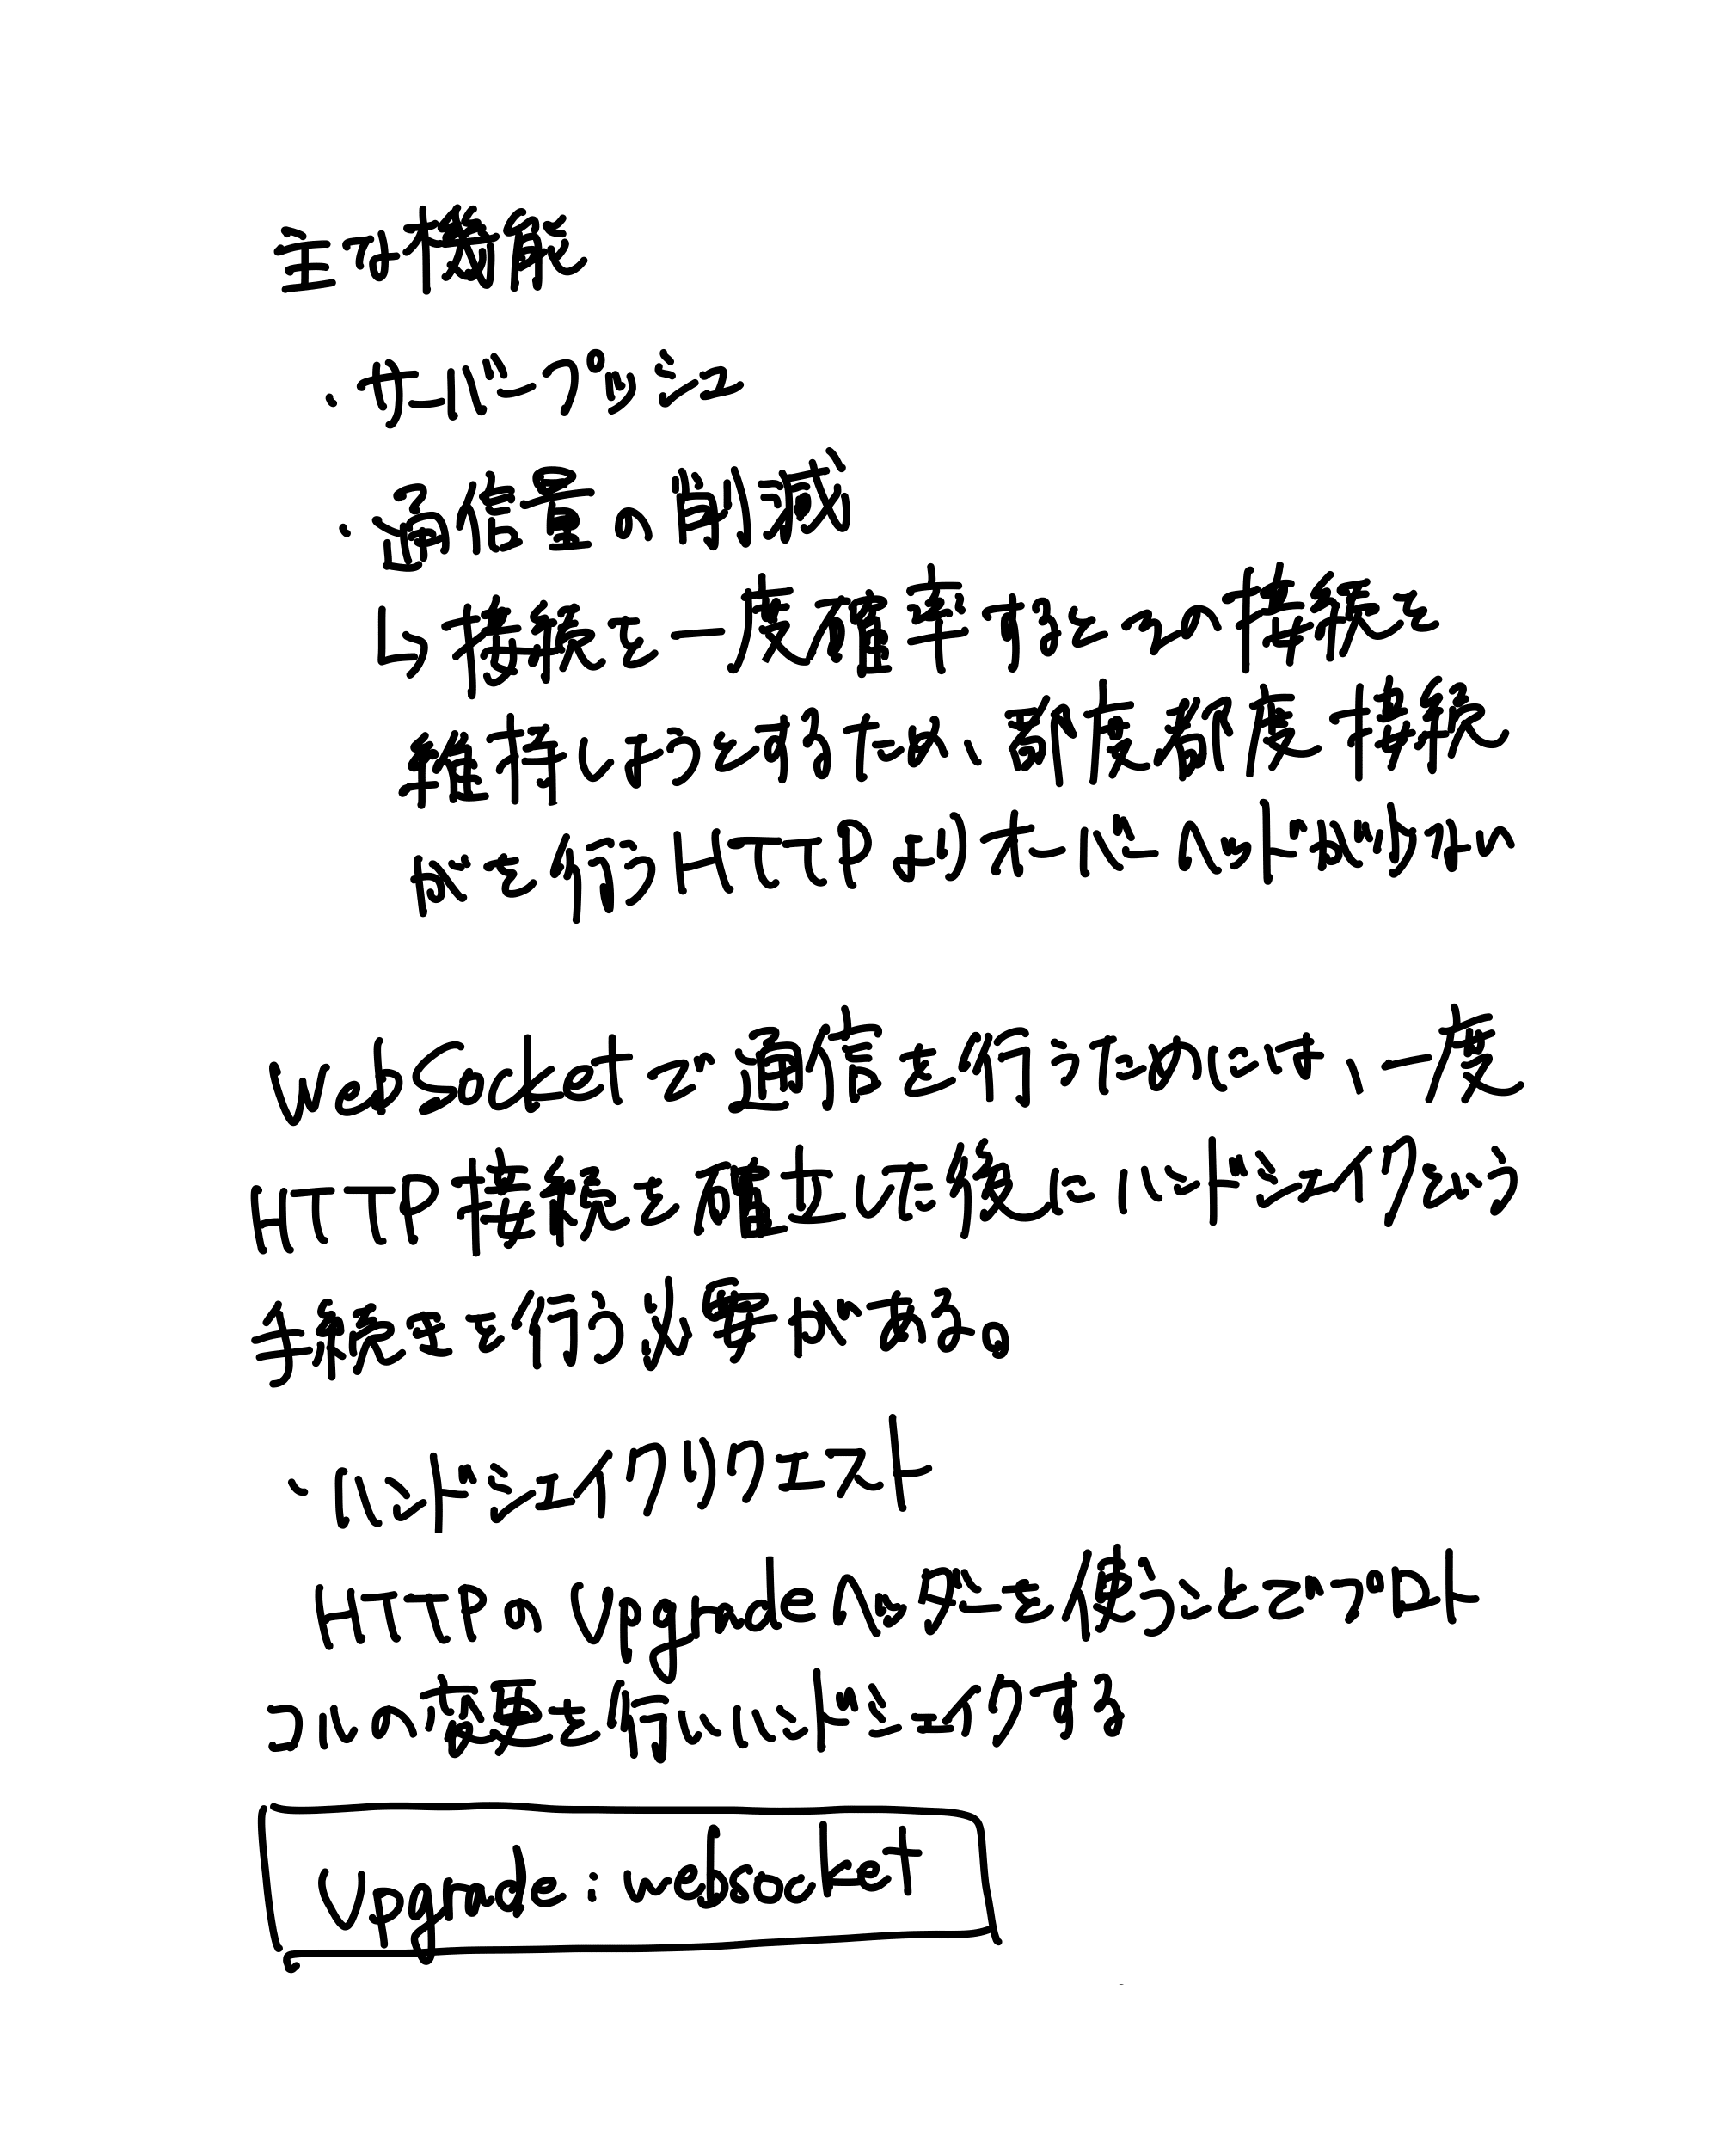 主な機能
・サーバープッシュ
・通信量の削減
↳接続を一度確率するとその接続を
維持しようとするため、都度都度接続
がを行うHTTPよりオーバーヘッドが少ない
WebSocketで通信を行うためには、一度
HTTP接続を確立した後にハンドシェイクという
手続きを行う必要がある。
・ハンドシェイクリクエスト
HTTPのUpgradeヘッダーを使うことでプロト
コルの変更を行いハンドシェイクする
Upgrade: websocket